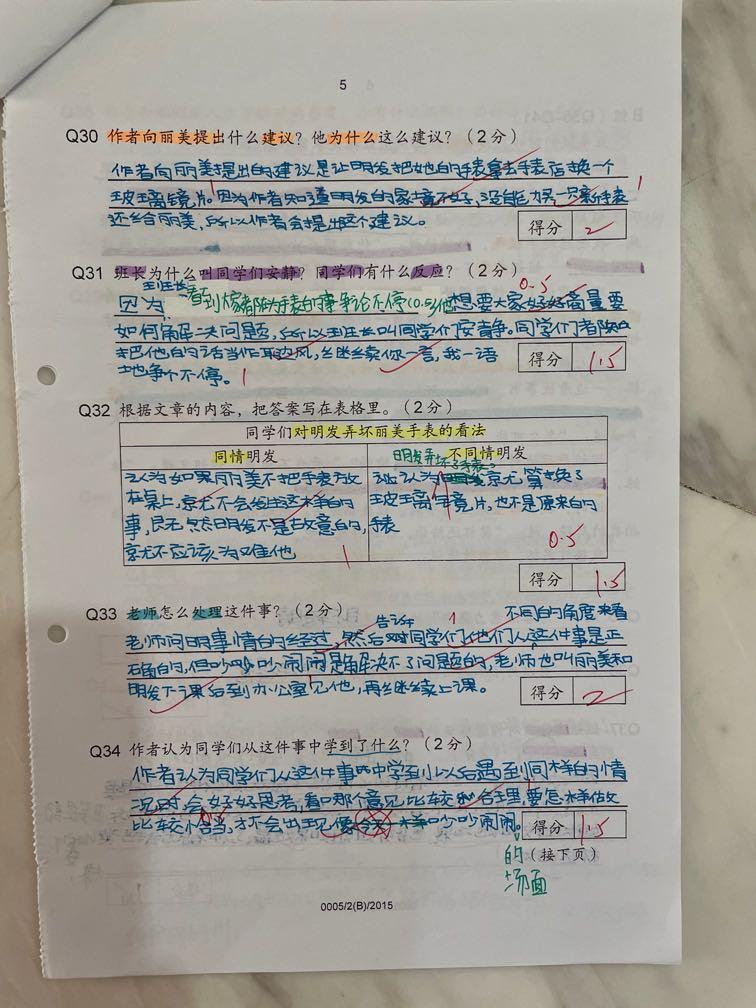 5
Q30 作者向丽美提出什么建议？他为什么这么建议？（2分）
作者向丽美提出的建议是让明发把她的手表拿去手表店换一个
玻璃镜片。因为作者知道明发的家境不好，没能力买一只新手表
还给丽美，所以作者会提出这个建议。
1
得分 2
Q31 班长为什么叫同学们安静？同学们有什么反应？（2分）
班长 0.5
因为看到大家都为手表的事争论不停(0.5)他想要大家好好商量要
如何解决问题，所以班长叫同学们安静。同学们都
把他的话当作耳边风，继续你一言，我一语
地争个不停。 1
得分 1.5
Q32 根据文章的内容，把答案写在表格里。（2分）
同学们对明发弄坏丽美手表的看法
同情明发
不同情明发
认为如果丽美不把手表放
在桌上，就不会发生这样的
事，既然明发不是故意的，
就不应该为难他
1
明发弄坏了手表
认为就算换了
玻璃镜片，也不是原来的
手表
0.5
得分 1.5
Q33 老师怎么处理这件事？（2分）
告诉 1 不同的角度来看
老师问明事情的经过，然后对同学们他们从这件事是正
确的，但吵吵闹闹是解决不了问题的，老师也叫丽美和
明发下课后到办公室见他，再继续上课。
得分 2
Q34 作者认为同学们从这件事中学到了什么？（2分）
作者认为同学们从这件事中学到以后遇到同样的情
况时，会好好思考，看哪个意见比较合理，要怎样做
比较恰当，才不会出现像 样吵吵闹闹
的
场面
得分 1.5
（接下页）
0005/2(B)/2015